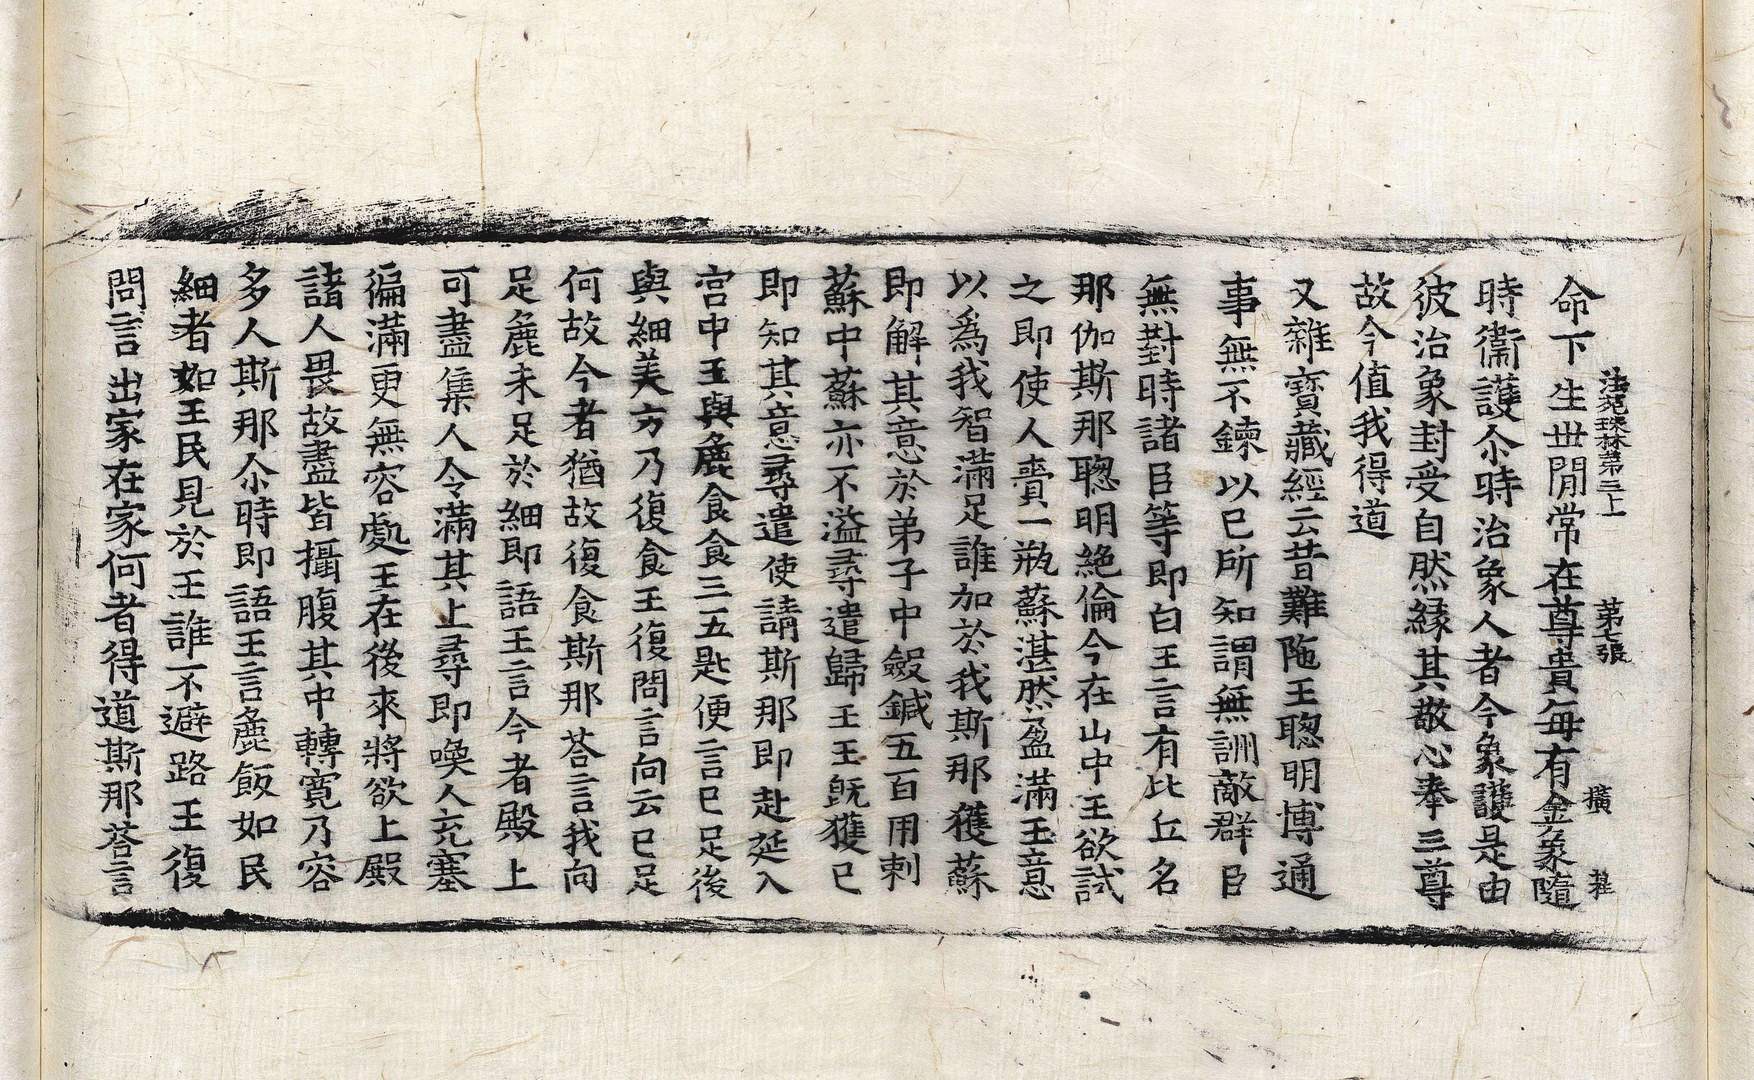 法苑珠林第三十 第七張 㩲
命下生世閒常在尊貴每有金象隨
時衛護尒時治象人者今象護是由
彼治象封受自然緣其敬心奉三尊
故今值我得道
又雜寶藏經云昔難陁王聰明博通
事無不鍊以已所知謂無詶敵群臣
無對時諸臣等即白王言有比丘名
那伽斯那聰明絶倫今在山中王欲試
之即使人賷一瓶蘇湛然盈滿王意
以爲我智滿足誰加於我斯那獲蘇
即解其意於弟子中斂鍼五百用刺
蘇中蘇亦不溢尋遣歸王王旣獲已
即知其意尋遣使請斯那即赴延入
宮中王與麁食食三五匙便言已足後
與細美方乃復食王復問言向云已足
何故今者猶故復食斯那荅言我向
足麁未足於細即語王言今者殿上
可盡集人令滿其上尋即喚人充塞
遍滿更無容處王在後來將欲上殿
諸人畏故盡皆攝腹其中轉寬乃容
多人斯那尒時即語王言麁飯如民
細者如王民見於王誰不避路王復
問言出家在家何者得道斯那荅言